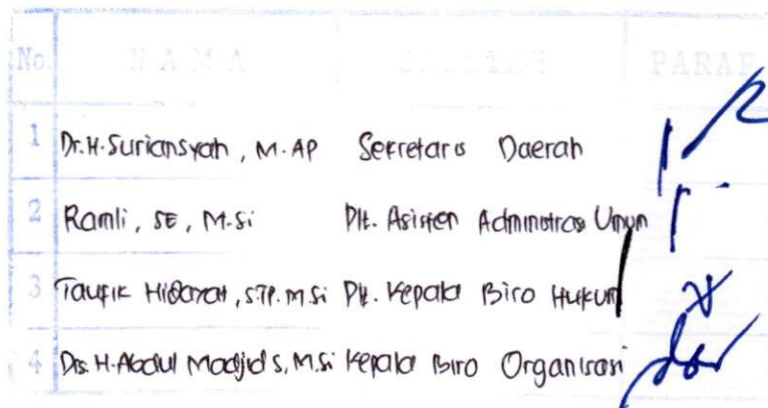 No. NAMA JABATAN PARAF
1 Dr. H. Suriansyah, M.AP Sekretaris Daerah
2 Ramli, SE, M.Si Plt. Asisten Administrasi Umum
3 Taufik Hidayat, S.TP. M.Si Plt. Kepala Biro Hukum
4 Drs. H. Abdul Madjid S, M.Si Kepala Biro Organisasi